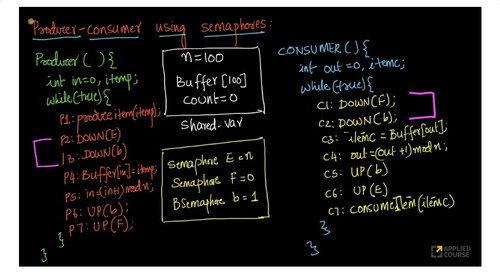 Producer-consumer using semaphores:
Producer( ){
int in=0, itemp;
while(true){
P1: produceitem(itemp);
P2: DOWN(E)
P3: DOWN(b)
P4: Buffer[in]=itemp;
P5: in=(in+1)mod n;
P6: UP(b);
P7: UP(F);
}
}
n=100
Buffer[100]
count=0
Shared-var
Semaphore E=n
Semaphore F=0
BSemaphore b=1
CONSUMER( ){
int out=0, itemc;
while(true){
C1: DOWN(F);
C2: DOWN(b);
C3: itemc=Buffer[out];
C4: out=(out+1)mod n;
C5: UP(b)
C6: UP(E)
C7: CONSUMEItem(itemc)
}
}
APPLIED
COURSE